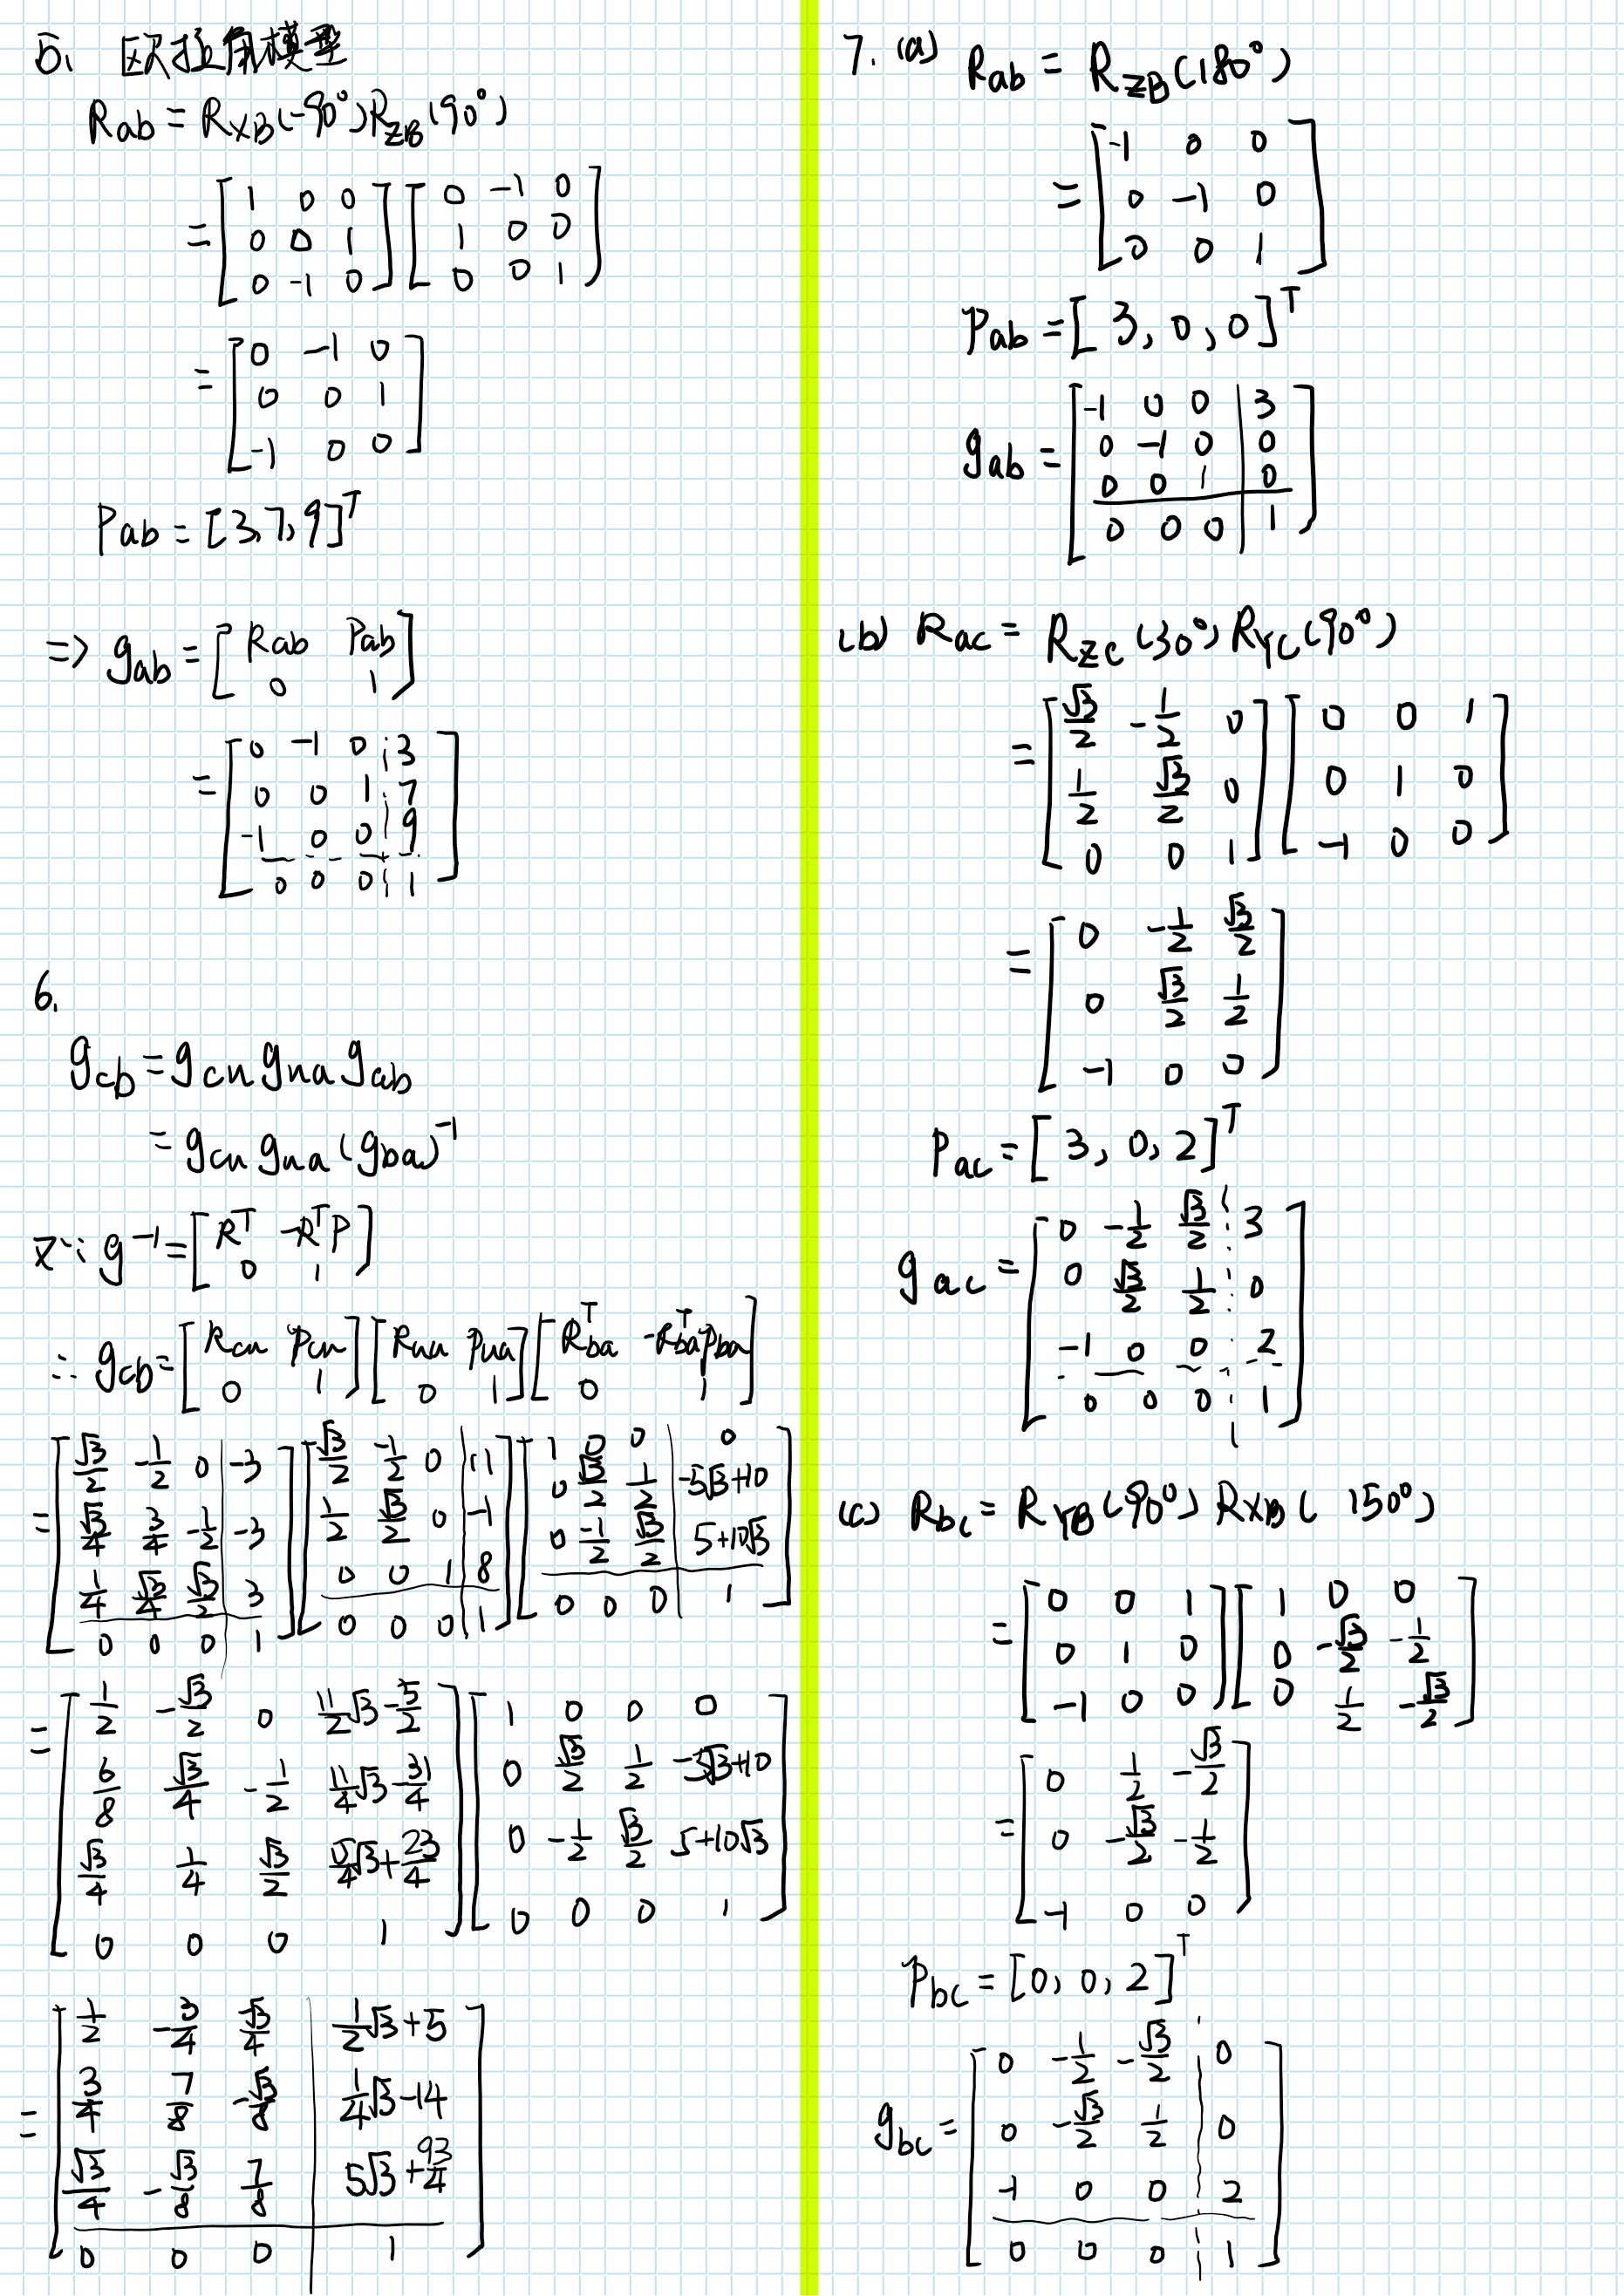 5. 欧拉角模型
Rab = RXB(-90°)RZB(90°)
= [1 0 0; 0 0 1; 0 -1 0] [0 -1 0; 1 0 0; 0 0 1]
= [0 -1 0; 0 0 1; -1 0 0]
Pab = [3,7,9]ᵀ
=> gab = [Rab Pab; 0 1]
= [0 -1 0 3; 0 0 1 7; -1 0 0 9; 0 0 0 1]
6.
gcb = gcn gna gab
= gcn gna (gba)⁻¹
又∵ g⁻¹ = [Rᵀ -RᵀP; 0 1]
∴ gcb = [Rcn Pcn; 0 1] [Rna Pna; 0 1] [Rbaᵀ -RbaᵀPba; 0 1]
= [√3/2 -1/2 0 -3; √3/4 3/4 -1/2 -3; 1/4 √3/4 √3/2 3; 0 0 0 1] [√3/2 -1/2 0 11; 1/2 √3/2 0 -1; 0 0 1 8; 0 0 0 1] [1 0 0 0; 0 √3/2 1/2 -5√3+10; 0 -1/2 √3/2 5+10√3; 0 0 0 1]
= [1/2 -√3/2 0 11/2√3-5/2; 6/8 √3/4 -1/2 11/4√3-31/4; √3/4 1/4 √3/2 15/4√3+23/4; 0 0 0 1] [1 0 0 0; 0 √3/2 1/2 -5√3+10; 0 -1/2 √3/2 5+10√3; 0 0 0 1]
= [1/2 -3/4 -√3/4 1/2√3+5; 3/4 7/8 -√3/8 1/4√3-14; √3/4 -√3/8 7/8 5√3+93/4; 0 0 0 1]
7. (a) Rab = RZB(180°)
= [-1 0 0; 0 -1 0; 0 0 1]
Pab = [3, 0, 0]ᵀ
gab = [-1 0 0 3; 0 -1 0 0; 0 0 1 0; 0 0 0 1]
(b) Rac = RZC(30°) RYC(90°)
= [√3/2 -1/2 0; 1/2 √3/2 0; 0 0 1] [0 0 1; 0 1 0; -1 0 0]
= [0 -1/2 √3/2; 0 √3/2 1/2; -1 0 0]
Pac = [3, 0, 2]ᵀ
gac = [0 -1/2 √3/2 3; 0 √3/2 1/2 0; -1 0 0 2; 0 0 0 1]
(c) Rbc = RYB(90°) RXB(150°)
= [0 0 1; 0 1 0; -1 0 0] [1 0 0; 0 -√3/2 -1/2; 0 1/2 -√3/2]
= [0 1/2 -√3/2; 0 -√3/2 -1/2; -1 0 0]
Pbc = [0, 0, 2]ᵀ
gbc = [0 -1/2 -√3/2 0; 0 -√3/2 1/2 0; -1 0 0 2; 0 0 0 1]